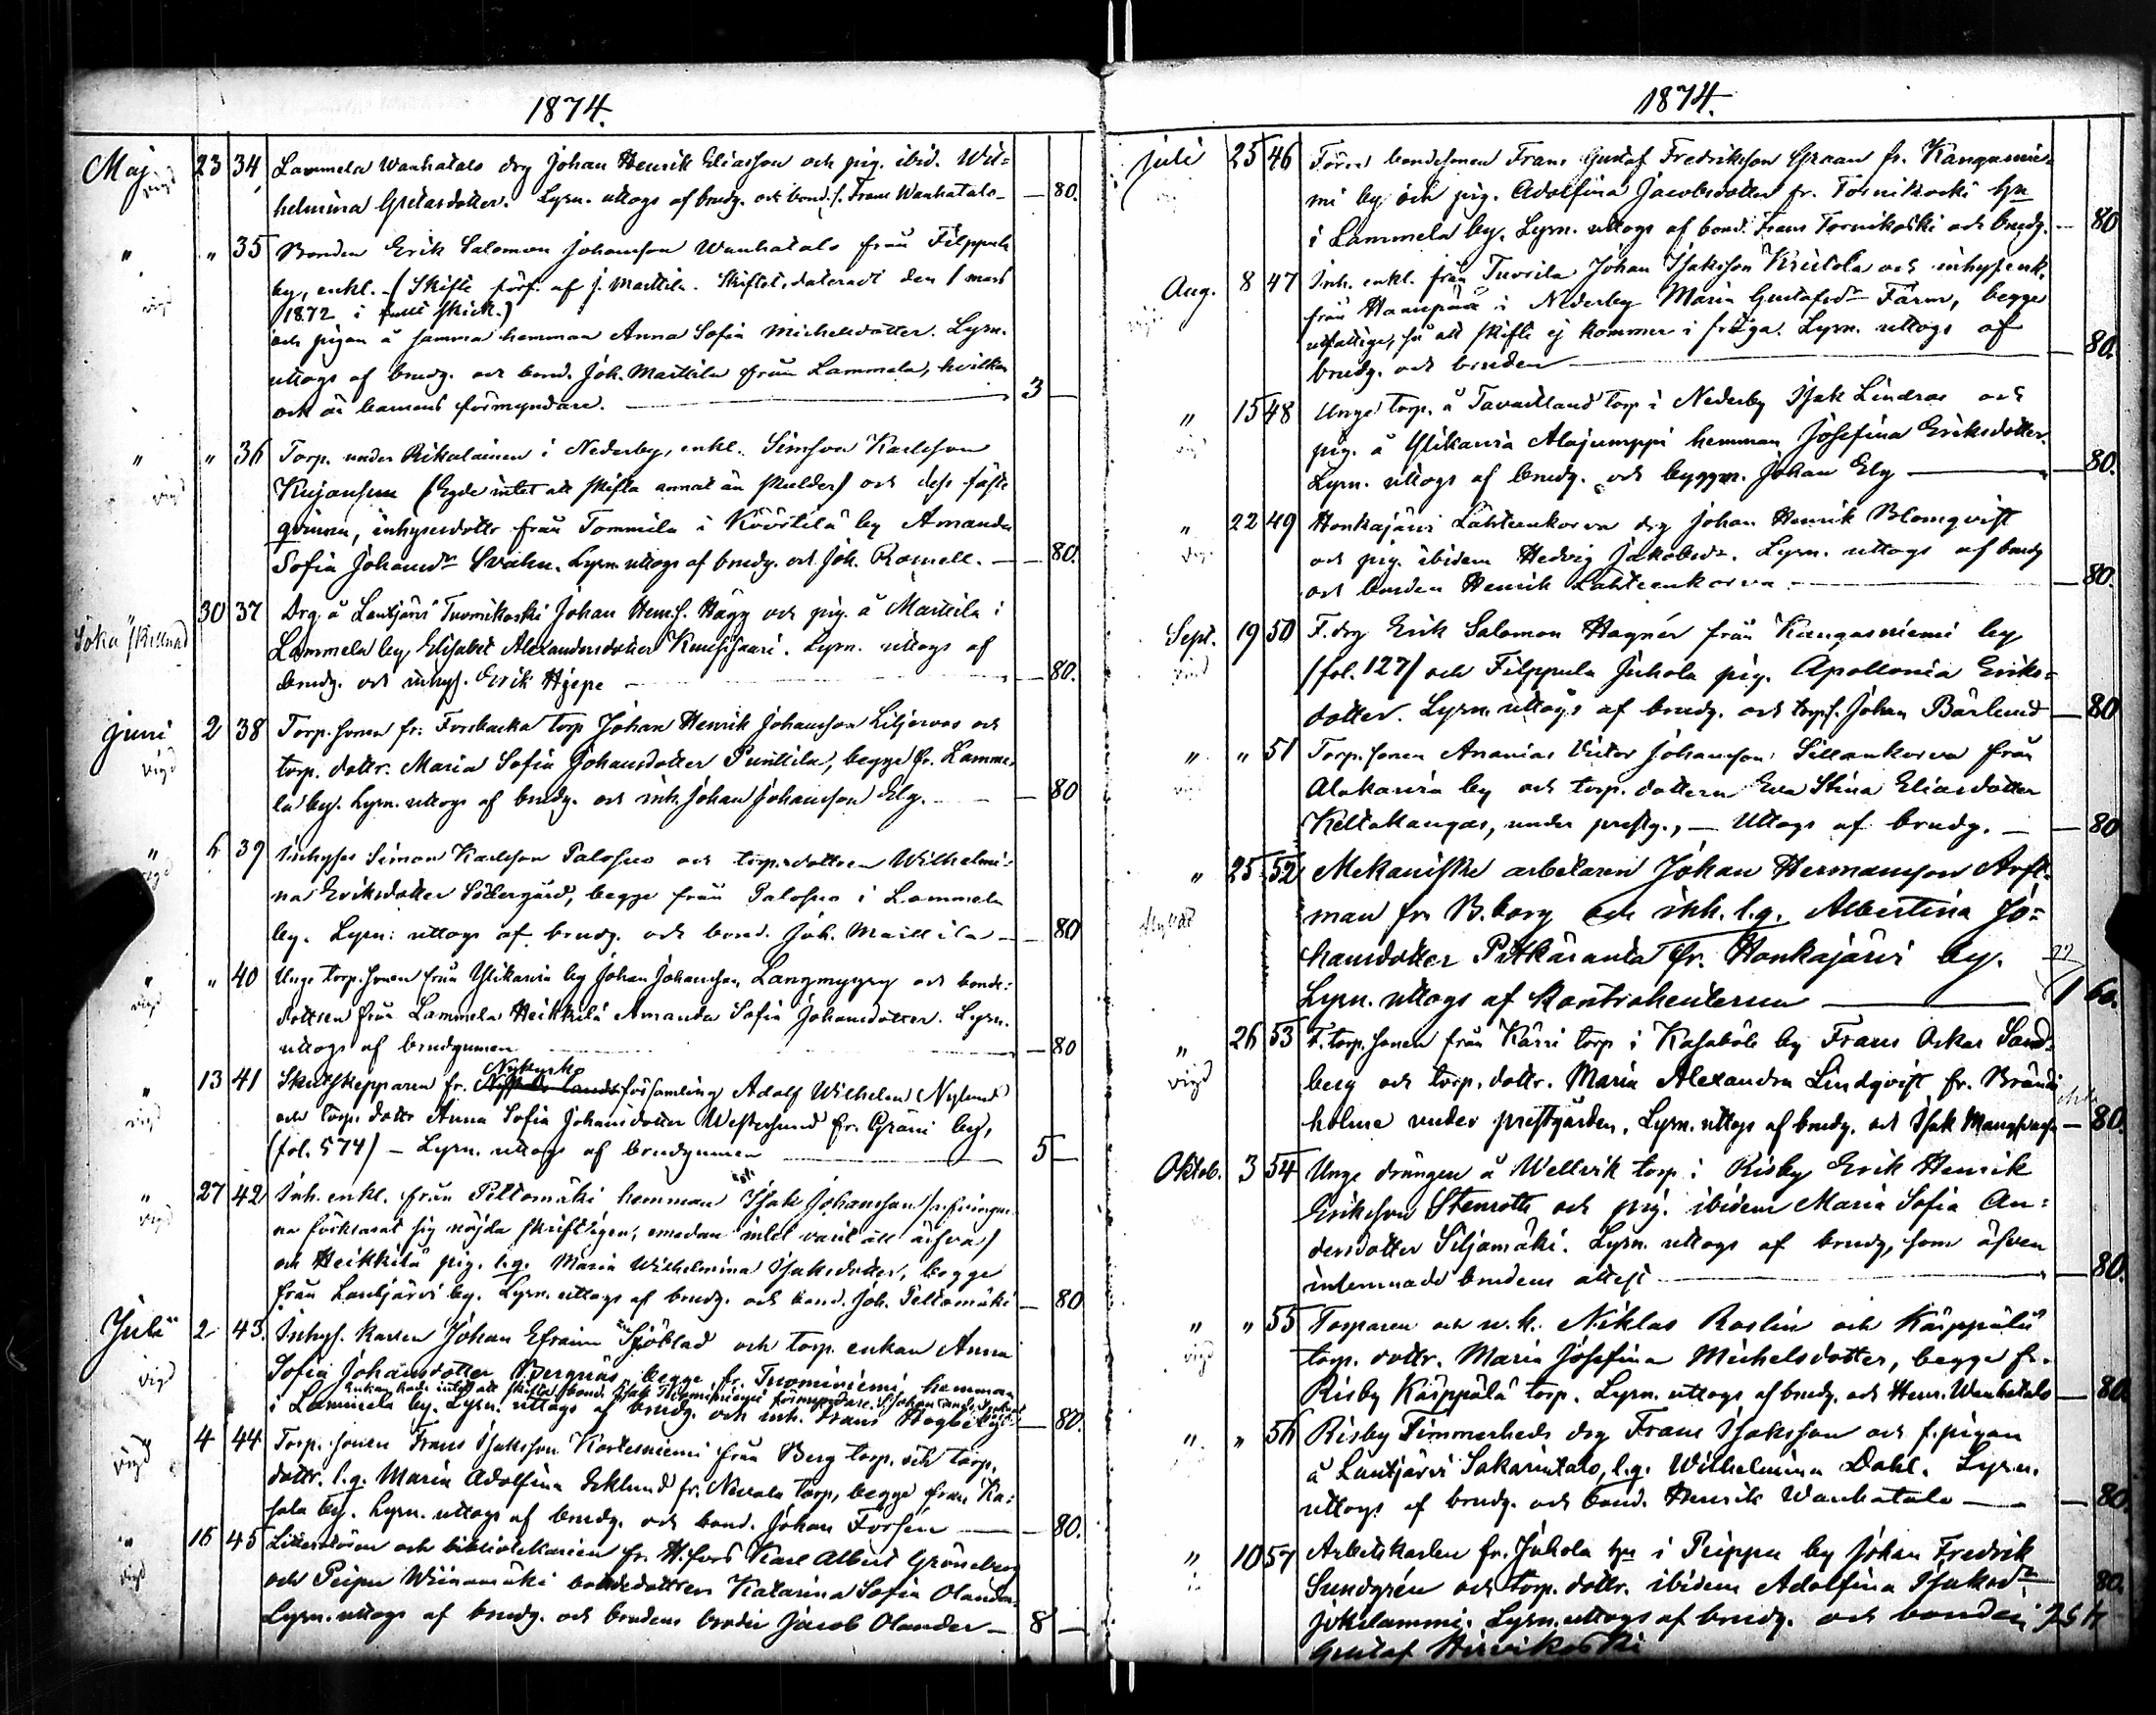 1874.
Maj 23 34 Lammela Wanhatalo drg Johan Henrik Eliasson och pig. ibid. Wil=
vigd helmina Gretasdotter. Lysn. uttogs af brudg. och bond.s. Frans Wanhatalo — 80.
" " 35 Bonden Erik Salomon Johansson Wanhatalo från Filppula
vigd by, enkl. (Skifte förf. af J. Marttila. Skiftet dateradt den 1 mars
1872 i skick.)
och pigan å samma hemman Anna Sofia Michelsdotter. Lysn.
uttogs af brudg. och bond. Joh. Marttila från Lammela, hvilken
ock är barnens förmyndare. 3 —
" " 36 Torp. under Rikalainen i Nederby, enkl. Simson Karlsson
vigd Kujansuu (Egde intet att skifta annat än skulder) och dess fäste
qvinna, inhysesdottr från Tommila i Köörtilä by Amanda
Sofia Johansdr Svahn. Lysn. uttogs af brudg. och Joh. Romell. — 80.
30 37 Drg. å Lautjärvi Tuornikoski Johan Henr.s. Hägg och pig. å Marttila i
Söka skillnad Lammela by Elisabet Alexandersdotter Kuusisaari. Lysn. uttogs af
brudg. och inhys. Erik Hjepe — 80.
Juni 2 38 Torp.sonen fr. Forsbacka torp Johan Henrik Johansson Liljeroos och
vigd torp. dottr. Maria Sofia Johansdotter Punttila, begge fr. Lamme-
la by. Lysn. uttogs af brudg. och inh. Johan Johansson Elg. — 80
" 6 39 Inhyses Simon Karlsson Palosuo och torp.dottren Wilhelmi=
vigd na Eriksdotter Södergård, begge från Palosuo i Lammela
by. Lysn. uttogs af brudg. och bond. Joh. Marttila — 80
" " 40 Unge torp.sonen från Ylikasvia by Johan Johansson Langmyyry och bonde=
vigd dottren från Lammela Heikkilä Amanda Sofia Johansdotter. Lysn.
uttogs af brudgumen — 80
Nykyrk.
" 13 41 Skutskepparen fr. församling Adolf Wilhelm Nylund
vigd och torp. dottr Anna Sofia Johansdotter Westersund fr. Gräni by,
(fol. 574) — Lysn. uttogs af brudgumen — 5 —
" 27 42 Inh. enkl. från Peltomäki hemman Isak Johansson
vigd na förklarat sig nöjda skriftligen, emedan intet varit att ärfva)
och Heikkilä pig. l.q. Maria Wilhelmina Isaksdotter, begge
från Lautjärvi by. Lysn. uttogs af brudg. och bond. Joh. Peltomäki — 80
Juli 2 43. Inhys. karlen Johan Efraim Sjöblad och torp. enkan Anna
vigd Sofia Johansdotter Bergnäs, begge fr. Tuominiemi hemman
Enkan hade intet att skifta, bond. Isak Tuominiemi förmyndare
i Lammela by. Lysn. uttogs af brudg. och inh. Frans — 80.
" 4 44 Torp. sonen Frans Isaksson Korteniemi från Berg torp. och torp.
vigd dottr. l.q. Maria Adolfina Eklund fr. Nevala torp, begge från Ka-
sala by. Lysn. uttogs af brudg. och bond. Johan Forsén — 80.
" 16 45 och bibliotekarien fr. H.fors Karl Albert Gröneberg
vigd och Peipu Wiinamäki bondedottren Katarina Sofia Olander.
Lysn. uttogs af brudg. och brudens broder Jacob Olander — 8 —
1874.
Juli 25 46 Förre bondesonen Frans Gustaf Fredriksson Graan fr. Kangasnie-
mi by och pig. Adolfina Jacobsdotter fr. Tornikoski hmn
i Lammela by. Lysn. uttogs af bond. Frans Tornikoski och brudg. — 80
Aug. 8 47 Inh. enkl. från Tuorila Johan Isaksson Krietola och inhysenk.
från Haanpää i Nederby Maria Gustafsdr Färm, begge
utfattige, så att skifte ej kommer i fråga. Lysn. uttogs af
brudg. och bruden — 80.
" 15 48 Unge torp. å Tavastland torp i Nederby Isak Lindroos och
pig. å Ylikasvia Alajumppi hemman Josefina Eriksdotter.
Lysn. uttogs af brudg. och byggm. Johan Elg — 80.
" 22 49 Honkajärvi Lähteenkorva drg Johan Henrik Blomqvist
och pig. ibidem Hedvig Jakobsdr. Lysn. uttogs af brudg
och bonden Henrik Lähteenkorva — 80.
Sept. 19 50 F. drg Erik Salomon Hagnér från Kangasniemi by
(fol. 127) och Filppula Juhola pig. Apollonia Eriks=
dotter. Lysn. uttogs af brudg. och torp.s. Johan Bärlund — 80
" " 51 Torp.sonen Ananias Victor Johansson Sillankorva från
Alakasvia by och torp. dottern Eva Stina Eliasdotter
Keltakangas, under prestg., — Uttogs af brudg. — 80
" 25 52 Mekaniske arbetaren Johan Hermansson Arft-
man fr. B.borg och inh. l.q. Albertina Jo=
hansdotter Pitkäranta fr. Honkajärvi by.
Lysn. uttogs af kontrahenterna — 1 60.
" 26 53 F. torp. sonen från Kärri torp i Kasaböle by Frans Oskar Sand=
vigd berg och torp. dottr. Maria Alexandra Lindqvist fr. Brändi
holme under prestgården. Lysn. uttogs af brudg. och Isak — 80.
Oktob. 3 54 Unge drängen å Wellvik torp i Risby Erik Henrik
Eriksson Stenroth och pig. ibidem Maria Sofia An=
dersdotter Siljamäki. Lysn. uttogs af brudg, som äfven
inlemnade brudens attest — 80.
" " 55 Torparen och n.k. Niklas Roslin och Käippälä
vigd torp. dottr. Maria Josefina Michelsdotter, begge fr.
Risby Käippälä torp. Lysn. uttogs af brudg. och Henr. Wanhatalo — 80
" " 56 Risby Timmerheds drg Frans Isaksson och f. pigan
å Lautjärvi Sakarintalo, l.q. Wilhelmina Dahl. Lysn.
uttogs af brudg. och bond. Henrik Wanhatalo — 80.
" 10 57 Arbetskarlen fr. Juhola hmn i Peippu by Johan Fredrik
Sundgrén och torp. dottr. ibidem Adolfina Isaksdr 80.
Jokilammi. Lysn. uttogs af brudg. och bonden
Gustaf Hirvikoski